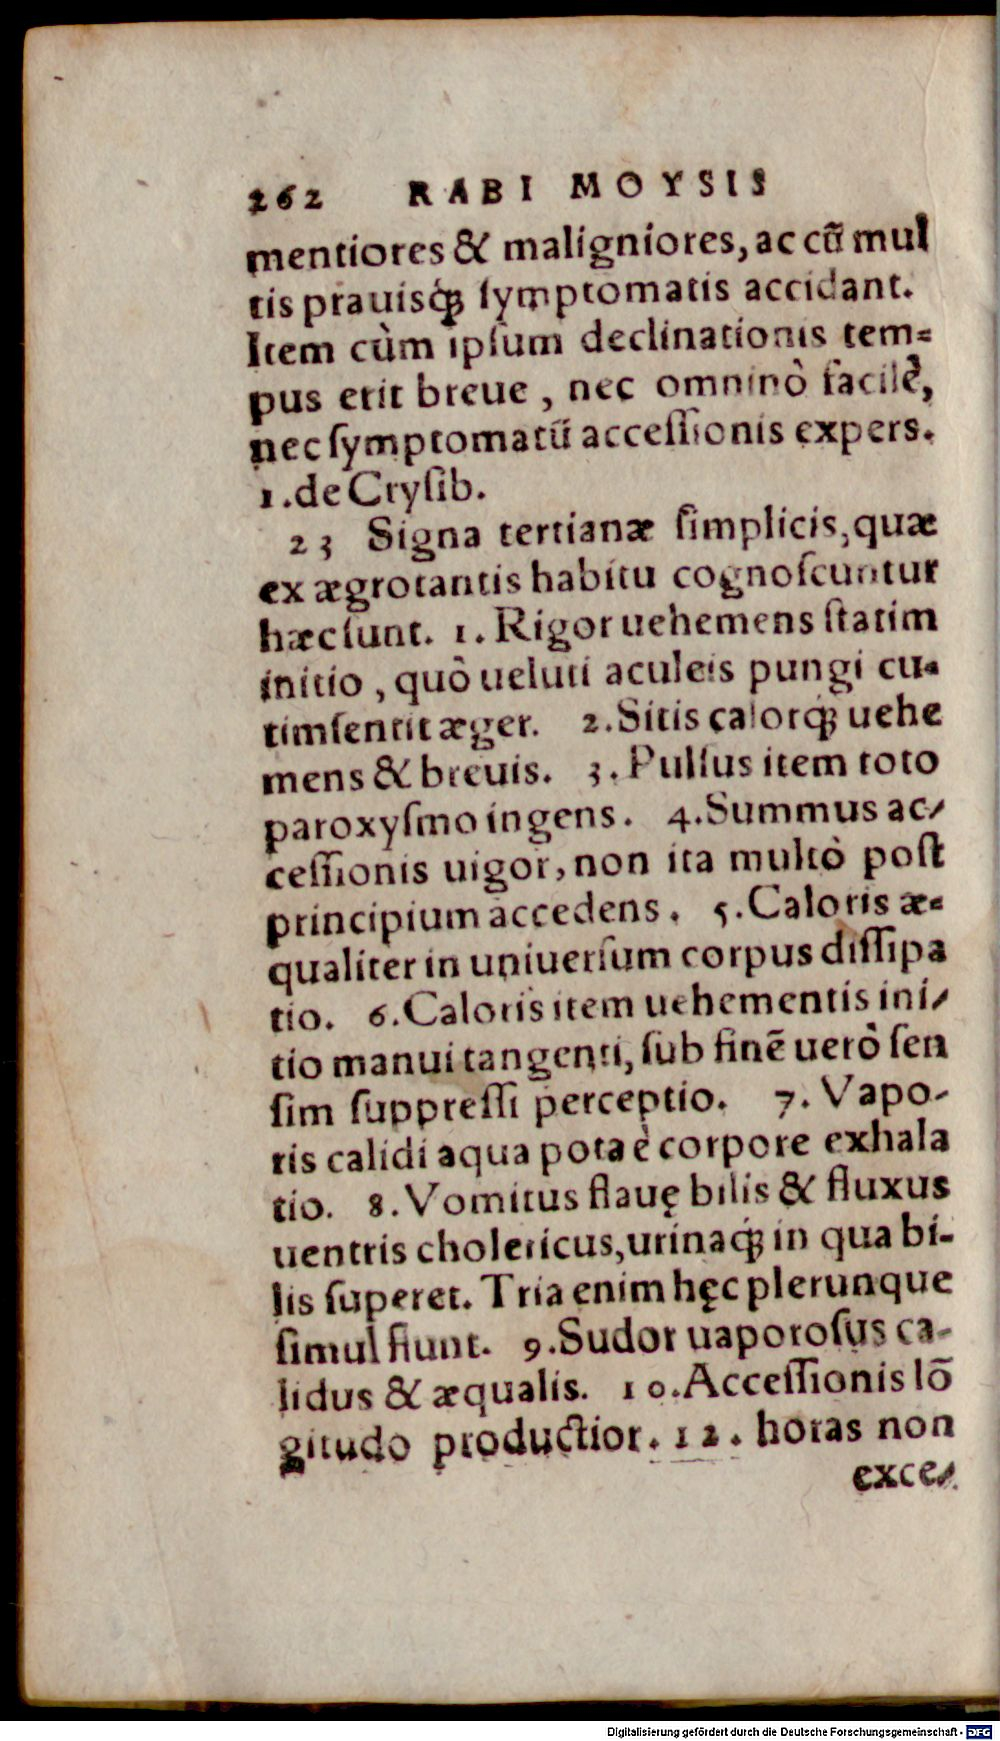 262 RABI MOYSIS
mentiores & maligniores, ac cū mul
tis prauisq́ꝫ ſymptomatis accidant.
Item cùm ipſum declinationis tem⸗
pus erit breue, nec omninò facilè,
nec ſymptomatū acceſſionis expers.
1. de Cryſib.
23 Signa tertianæ ſimplicis, quæ
ex ægrotantis habitu cognoſcuntur
hæc ſunt. 1. Rigor uehemens ſtatim
initio, quò ueluti aculeis pungi cu⸗
tim ſentit æger. 2. Sitis calorq́ꝫ uehe
mens & breuis. 3. Pulſus item toto
paroxyſmo ingens. 4. Summus ac⸗
ceſſionis uigor, non ita multò poſt
principium accedens. 5. Caloris æ⸗
qualiter in uniuerſum corpus diſſipa
tio. 6. Caloris item uehementis ini⸗
tio manui tangenti, ſub finē uerò ſen
ſim ſuppreſſi perceptio. 7. Vapo-
ris calidi aqua pota è corpore exhala
tio. 8. Vomitus flauę bilis & fluxus
uentris cholericus, urinaq́ꝫ in qua bi-
lis ſuperet. Tria enim hęc plerunque
ſimul fiunt. 9. Sudor uaporoſus ca-
lidus & æqualis. 10. Acceſſionis lō
gitudo productior. 12. horas non
exce⸗
Digitalisierung gefördert durch die Deutsche Forschungsgemeinschaft - DFG